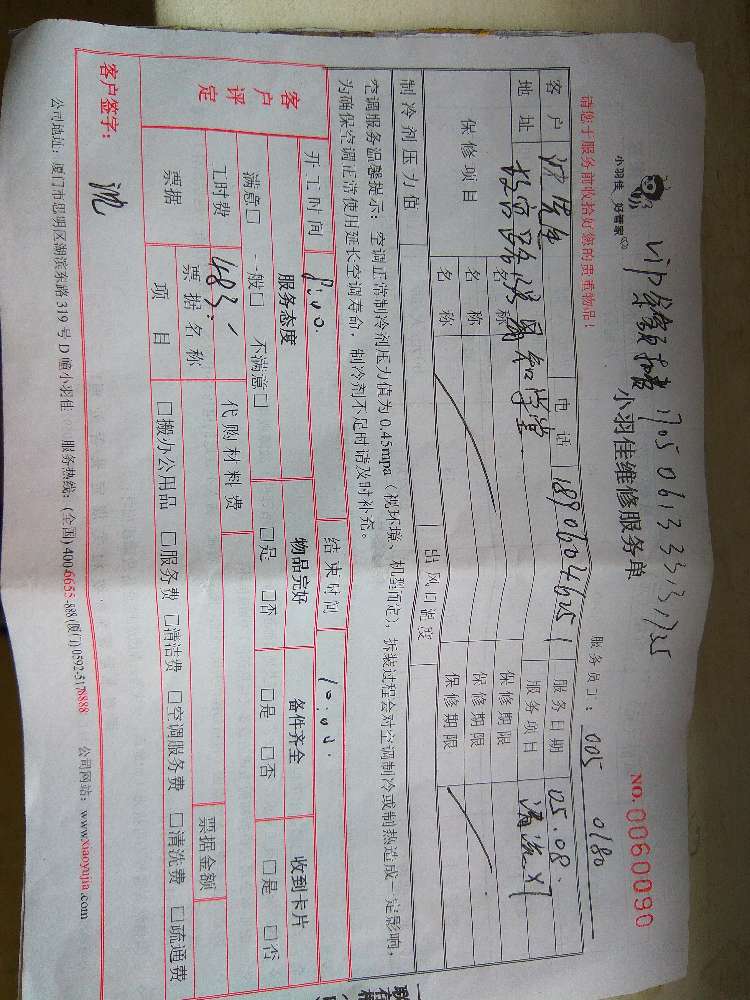 小羽佳 好管家
vip 余额抽盘 170506133313125
小羽佳维修服务单
NO.0060090
请您于服务前收拾好您的贵重物品!
服务员工: 005 0180
客户 沈先生 电话 18906046251 服务日期 05.08.
地址 服务项目 清洗×1
保修项目 名称 保修期限
名称 保修期限
名称 保修期限
制冷剂压力值 出风口温度
空调服务温馨提示: 空调正常制冷剂压力值为 0.45mpa (视环境、机型而定), 拆装过程会对空调制冷或制热造成一定影响,
为确保空调正常使用延长空调寿命, 制冷剂不足时请及时补充。
开工时间 8:00. 结束时间 10:00.
客户评定 服务态度 物品完好 备件齐全 收到卡片
满意□ 一般□ 不满意□ □是 □否 □是 □否 □是 □否
工时费 483.- 代购材料费
票据 票据名称 票据金额
项目 □搬办公用品 □服务费 □清洁费 □空调服务费 □清洗费 □疏通费
客户签字: 沈
公司地址: 厦门市思明区湖滨东路 319 号 D 幢小羽佳 服务热线: (全国) 400-6655-888 (厦门) 0592-5178888 公司网站: www.xiaoyujia.com